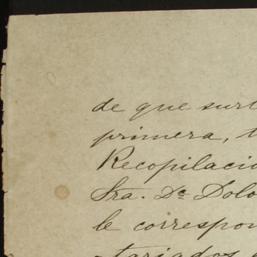 de que surt
primera, t
Recopilacio
Sra. Da Dolo
le correspon
tariados